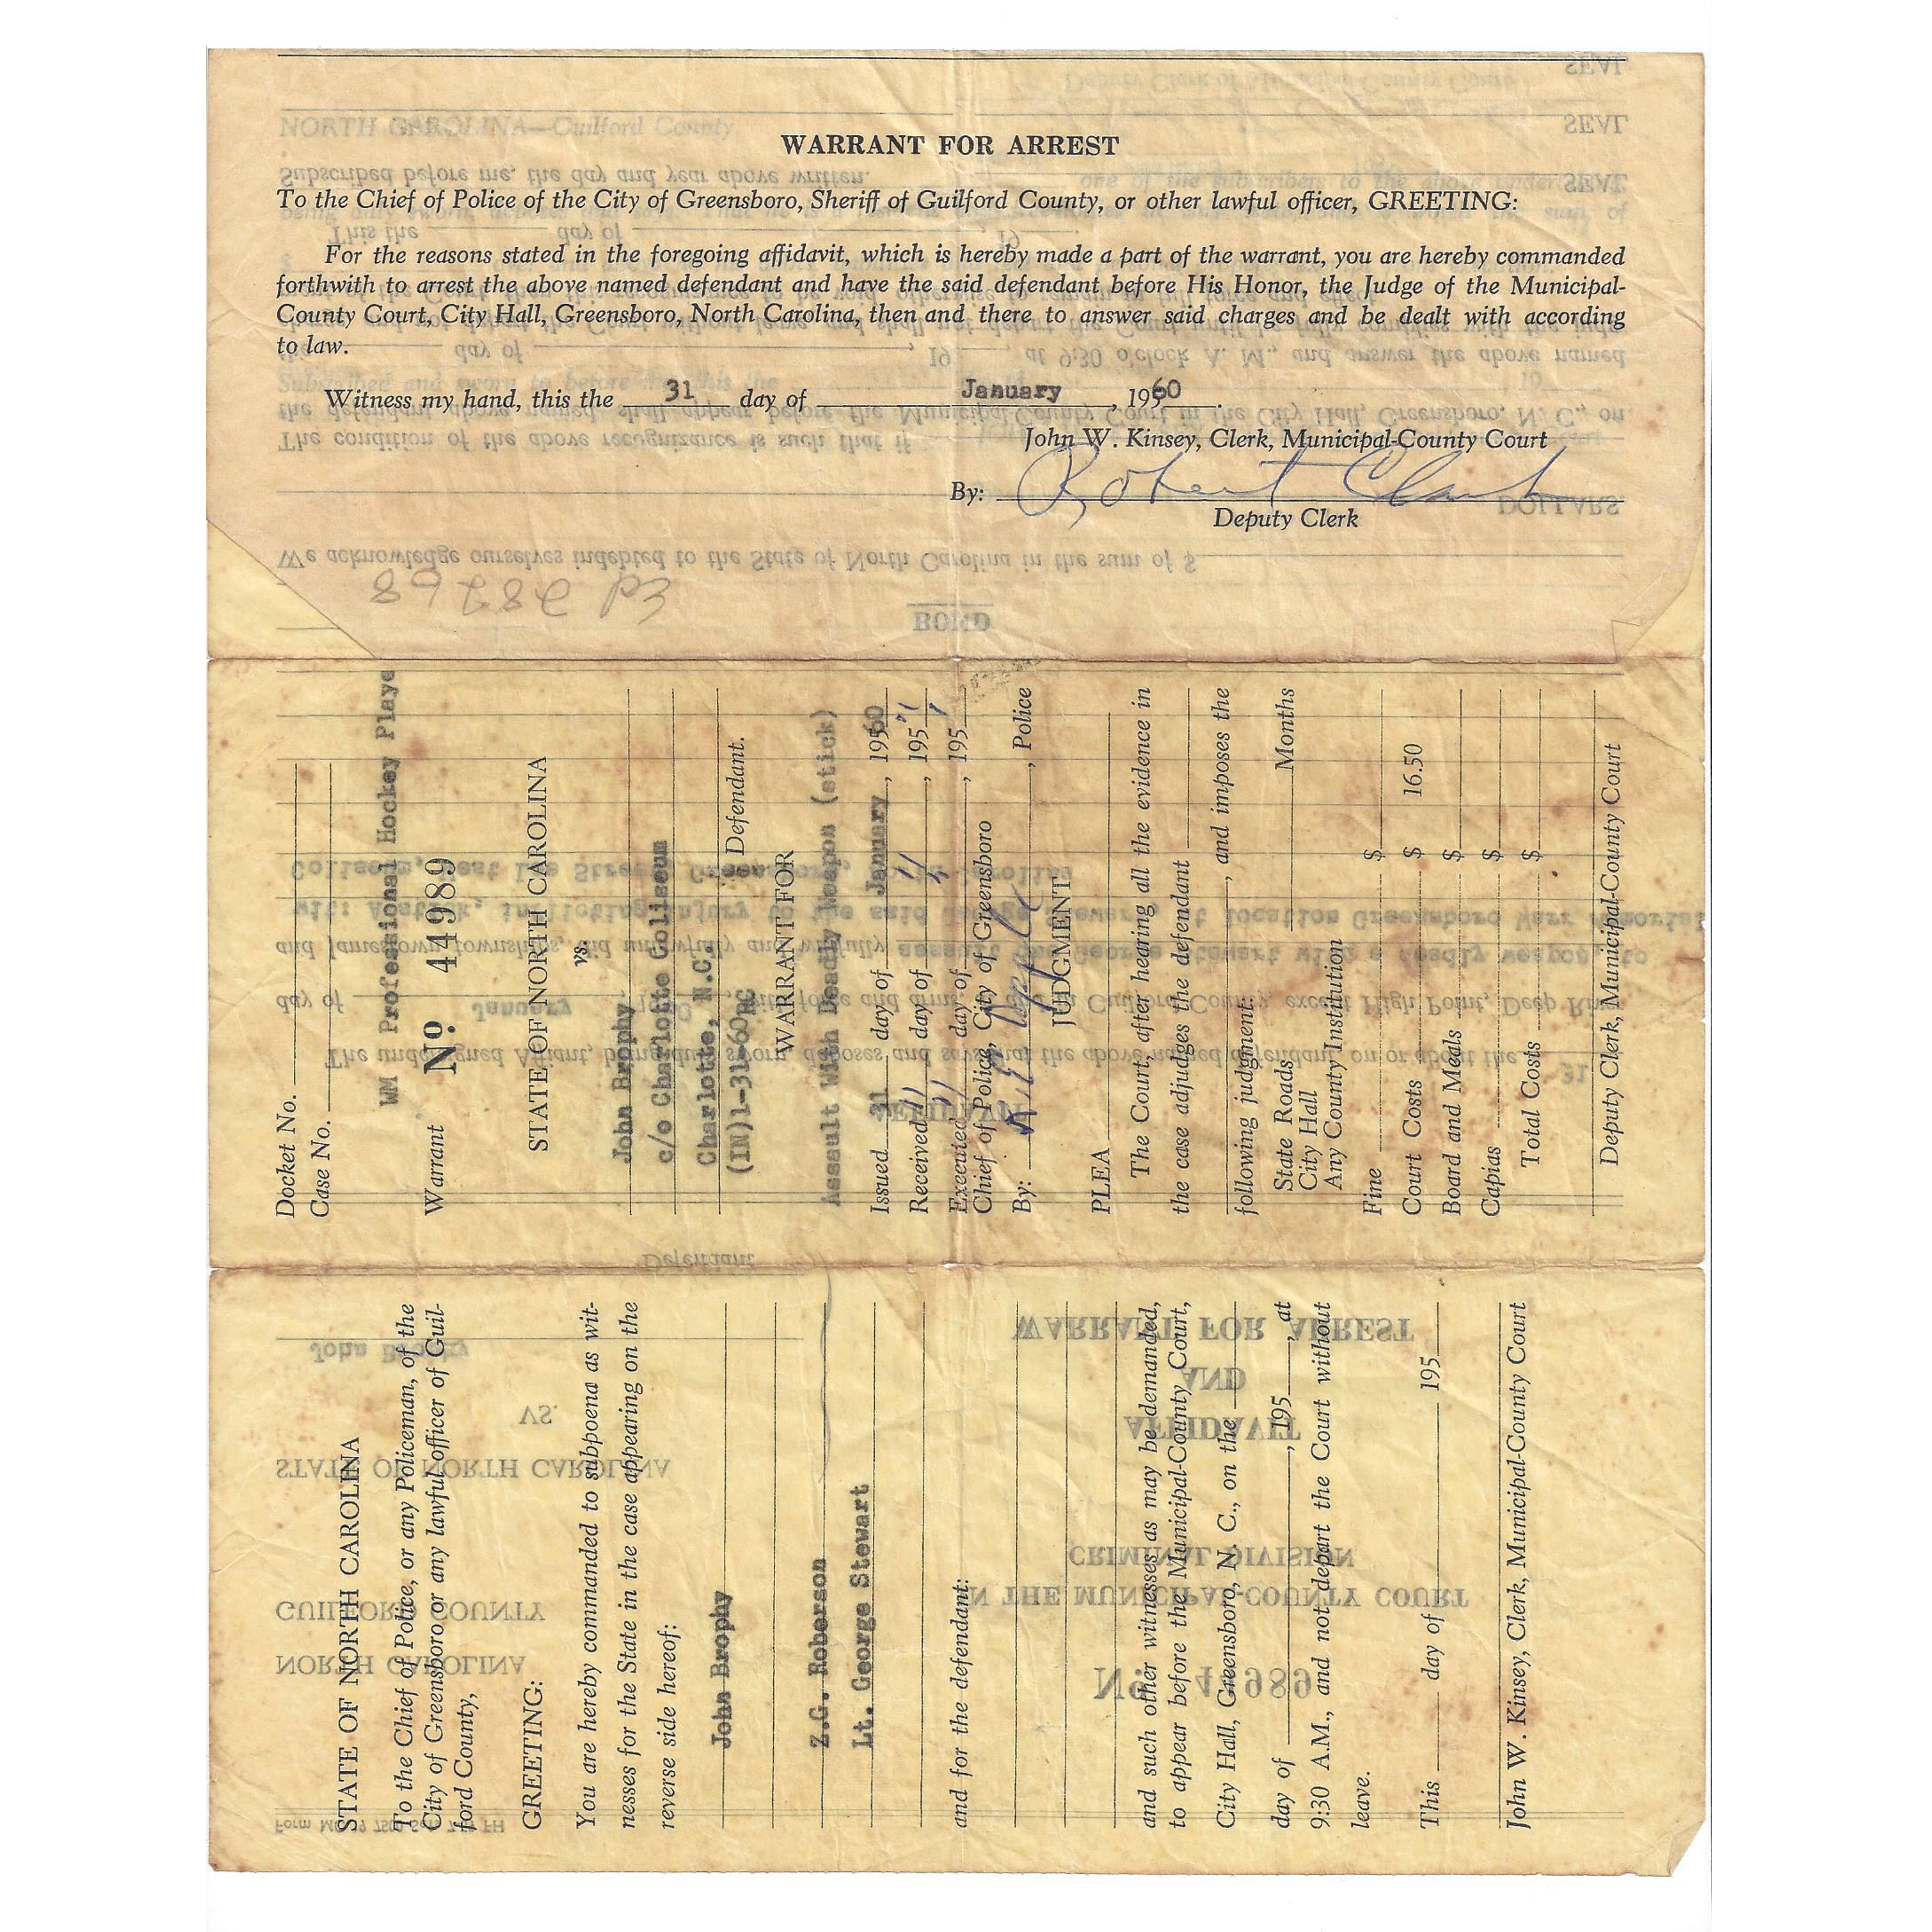 WARRANT FOR ARREST
To the Chief of Police of the City of Greensboro, Sheriff of Guilford County, or other lawful officer, GREETING:
For the reasons stated in the foregoing affidavit, which is hereby made a part of the warrant, you are hereby commanded
forthwith to arrest the above named defendant and have the said defendant before His Honor, the Judge of the Municipal-
County Court, City Hall, Greensboro, North Carolina, then and there to answer said charges and be dealt with according
to law.
Witness my hand, this the 31 day of January, 1960.
John W. Kinsey, Clerk, Municipal-County Court
By: Robert Clark
Deputy Clerk
We acknowledge ourselves indebted to the State of North Carolina in the sum of $
DOLLARS
BOND
Docket No.
Case No.
WM Professional Hockey Playe
Warrant No 44989
STATE OF NORTH CAROLINA
vs.
John Brophy
c/o Charlotte Coliseum
Charlotte, N.C.
(IN)1-31-60RG Defendant.
WARRANT FOR
Assault With Deadly Weapon (stick)
Issued 31 day of January, 1960
Received 11 day of 11, 195
Executed 11 day of 11, 195
Chief of Police, City of Greensboro
By: , Police
JUDGMENT
PLEA
The Court, after hearing all the evidence in
the case adjudges the defendant
, and imposes the
following judgment:
State Roads
City Hall Months
Any County Institution
Fine $
Court Costs $ 16.50
Board and Meals $
Capias $
Total Costs $
Deputy Clerk, Municipal-County Court
STATE OF NORTH CAROLINA
To the Chief of Police, or any Policeman, of the
City of Greensboro, or any lawful officer of Guil-
ford County,
GREETING:
You are hereby commanded to subpoena as wit-
nesses for the State in the case appearing on the
reverse side hereof:
John Brophy
Z.G. Roberson
Lt. George Stewart
and for the defendant:
and such other witnesses as may be demanded,
to appear before the Municipal-County Court,
City Hall, Greensboro, N. C., on the
day of , 195 , at
9:30 A.M., and not depart the Court without
leave.
This day of 195
John W. Kinsey, Clerk, Municipal-County Court